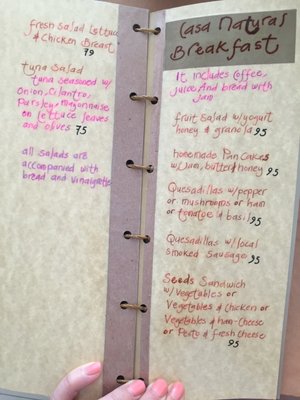 fresh Salad Lettuce
& Chicken Breast
79
tuna Salad
tuna seasoned w/
Onion, Cilantro,
Parsley, mayonnaise
on lettuce leaves
and olives 75
all salads are
accompanied with
bread and vinaigrette
Casa Natural
Breakfast
It includes coffee,
juice And bread with
Jam
fruit Salad w/yogurt
honey & granola 95
homemade Pancakes
w/Jam, butter & honey 95
Quesadillas w/pepper
or mushrooms or ham
or tomatoe & basil 95
Quesadillas w/local
smoked Sausage 95
Seeds Sandwich
w/ Vegetables or
Vegetables & Chicken or
Vegetables & ham-Cheese
or Pesto & fresh Cheese
95